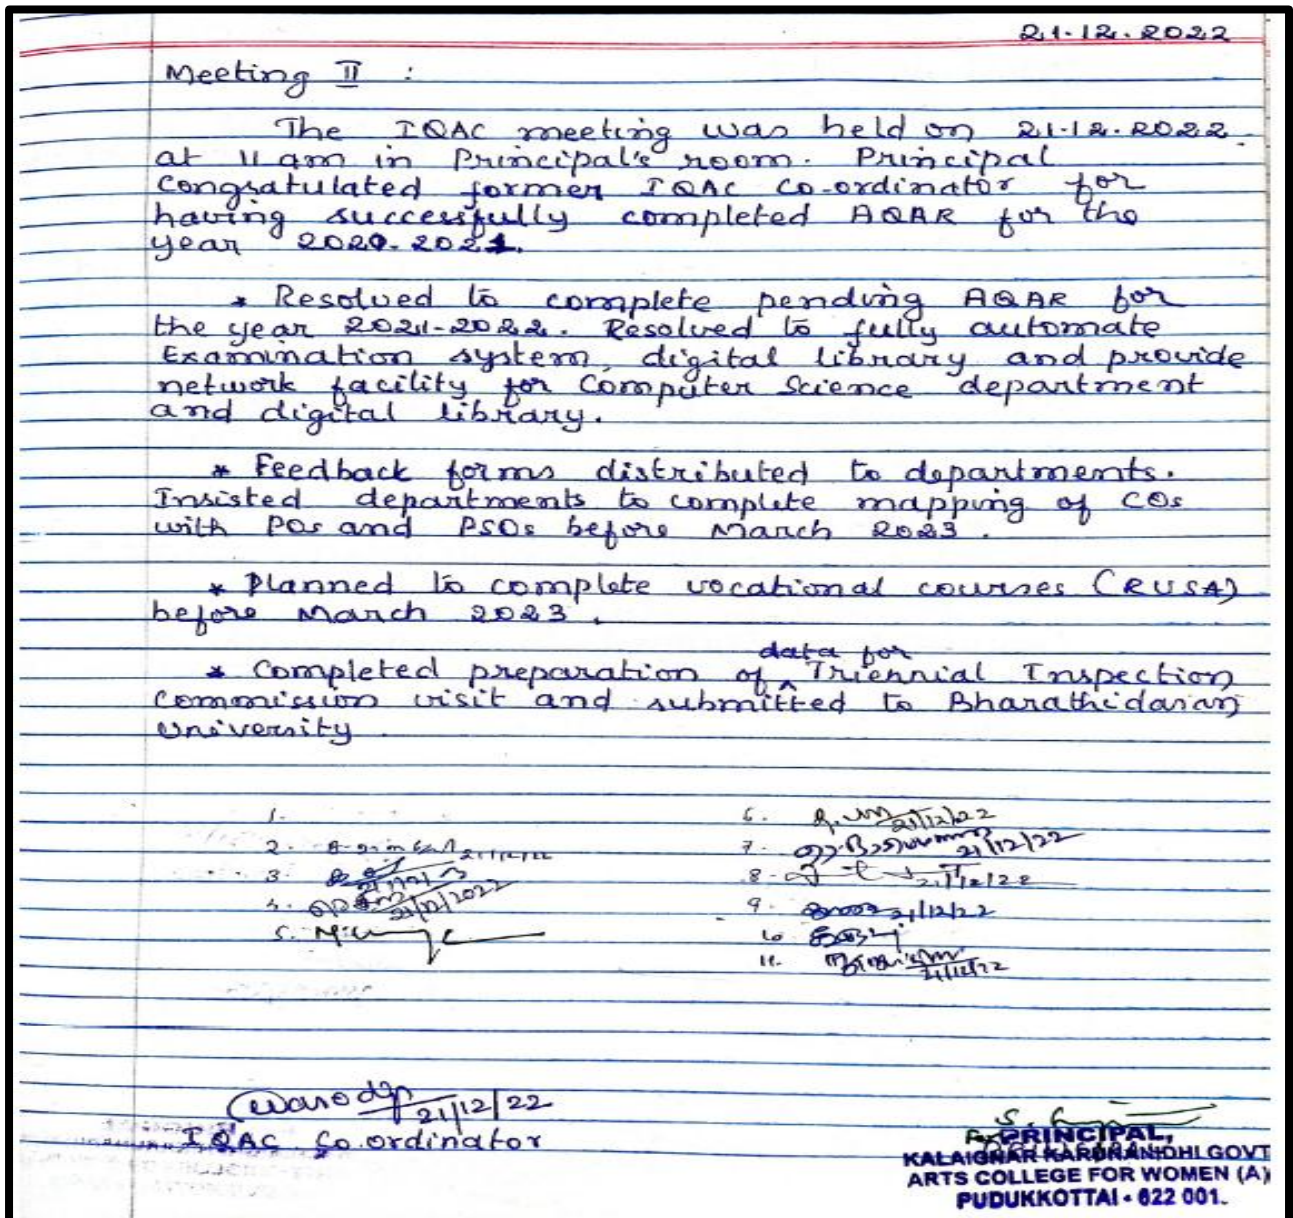 21.12.2022
Meeting II :
The IQAC meeting was held on 21.12.2022
at 11 am in Principal's room. Principal
Congratulated former IQAC Co-ordinator for
having successfully completed AQAR for the
year 2020-2021.
* Resolved to complete pending AQAR for
the year 2021-2022. Resolved to fully automate
Examination system, digital library and provide
network facility for Computer Science department
and digital library.
* Feedback forms distributed to departments.
Insisted departments to complete mapping of COs
with POs and PSOs before March 2023.
* Planned to complete vocational courses (RUSA)
before March 2023.
data for
* Completed preparation of ^ Triennial Inspection
Commission visit and submitted to Bharathidasan
University
1.
2. 21/12/22
3.
4. 21/12/2022
5.
6. 21/12/22
7. 21/12/22
8. 21/12/22
9. 21/12/22
10
11. 21/12/22
21/12/22
IQAC Co.ordinator
PRINCIPAL,
KALAIGNAR KARUNANIDHI GOVT
ARTS COLLEGE FOR WOMEN (A)
PUDUKKOTTAI - 622 001.